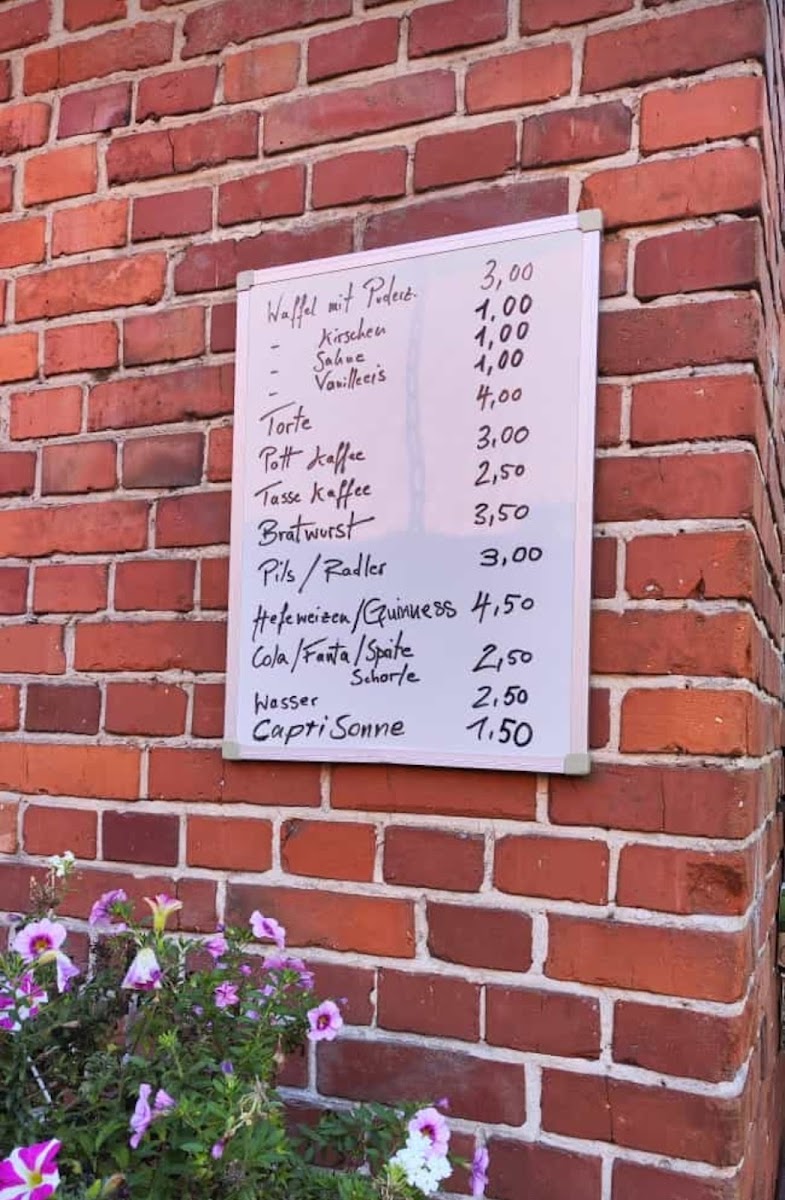 Waffel mit Puderz. 3,00
- Kirschen 1,00
- Sahne 1,00
- Vanilleeis 1,00
Torte 4,00
Pott Kaffee 3,00
Tasse Kaffee 2,50
Bratwurst 3,50
Pils/Radler 3,00
Hefeweizen/Guinness 4,50
Cola/Fanta/Spite 2,50
Schorle
Wasser 2,50
CapriSonne 1,50